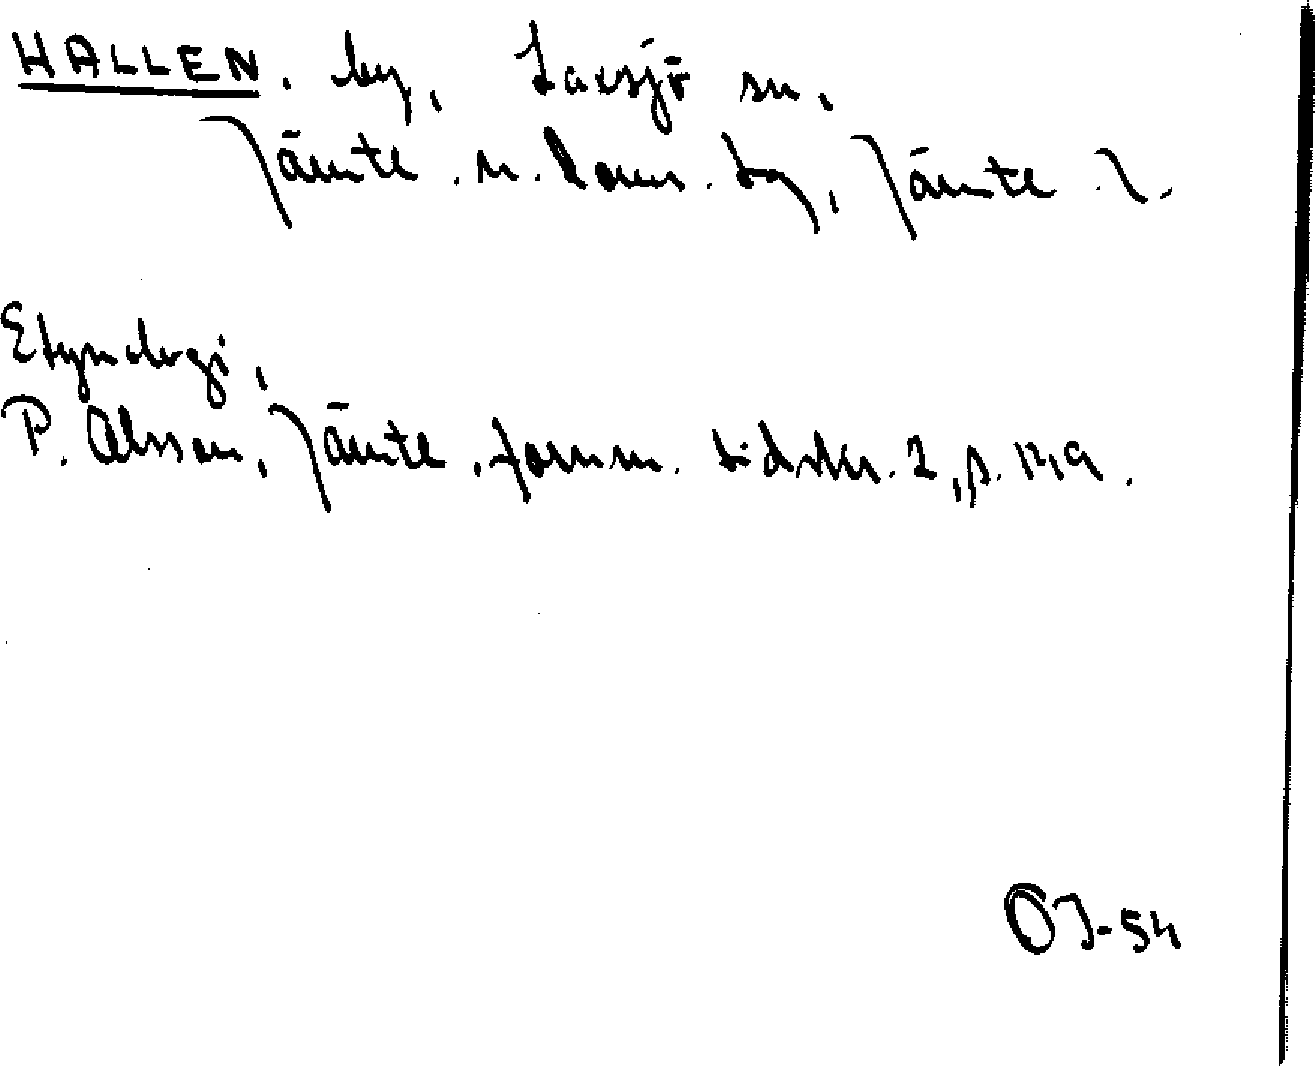 HALLEN, by, Laxsjö sn,
Jämtl. n. doms. tg, Jämtl. l.
Etymologi,
P. Olsson, Jämtl. fornm. tidskr. 2, s. 149.
OJ-54